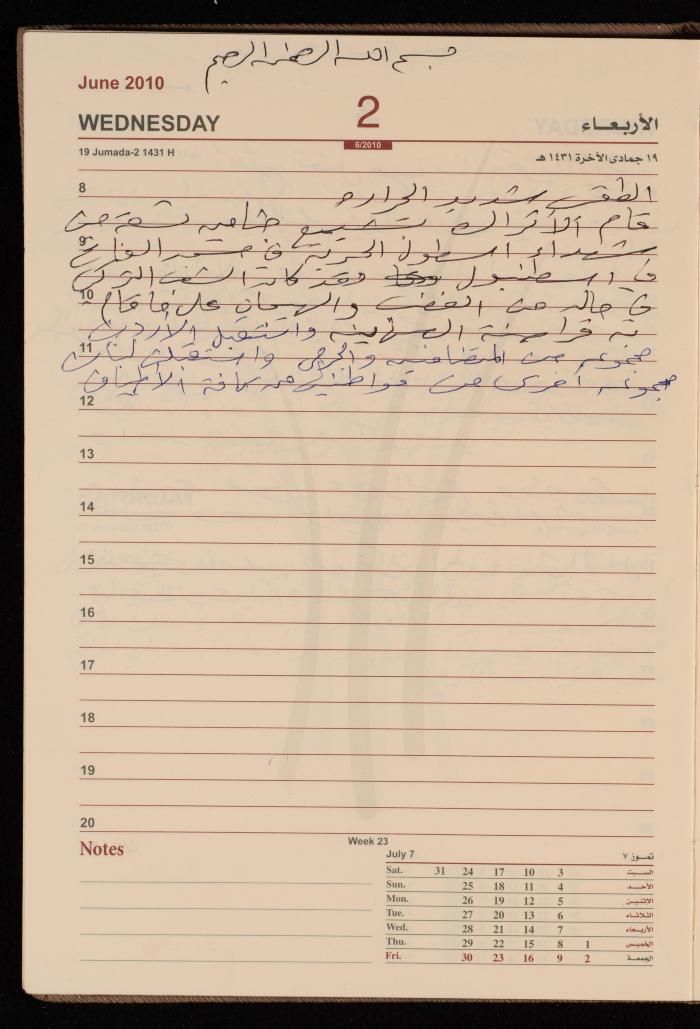 بسم الله الرحمن الرحيم
June 2010
WEDNESDAY
2
6/2010
الأربعـاء
19 Jumada-2 1431 H
١٩ جمادى الآخرة ١٤٣١ هـ
8
الطقس شديد الحرارة
قام الأتراك بتشييع جثامين تسعة من
9
شهداء اسطول الحرية في مسجد الفاتح
في اسطنبول وقد كان الشعب التركي
10
في حالة من الغضب والهيجان على ما قام
به قراصنة الصهاينة واستقبل الأردن
11
مجموعة من المتضامنين والجرحى واستقبلت لبنان
مجموعة أخرى من مواطنيه من كافة الأطياف
12
13
14
15
16
17
18
19
20
Notes
Week 23
July 7 تمـوز ٧
Sat. 31 24 17 10 3 السبت
Sun. 25 18 11 4 الأحـد
Mon. 26 19 12 5 الإثنين
Tue. 27 20 13 6 الثلاثاء
Wed. 28 21 14 7 الأربعاء
Thu. 29 22 15 8 1 الخميس
Fri. 30 23 16 9 2 الجمعة